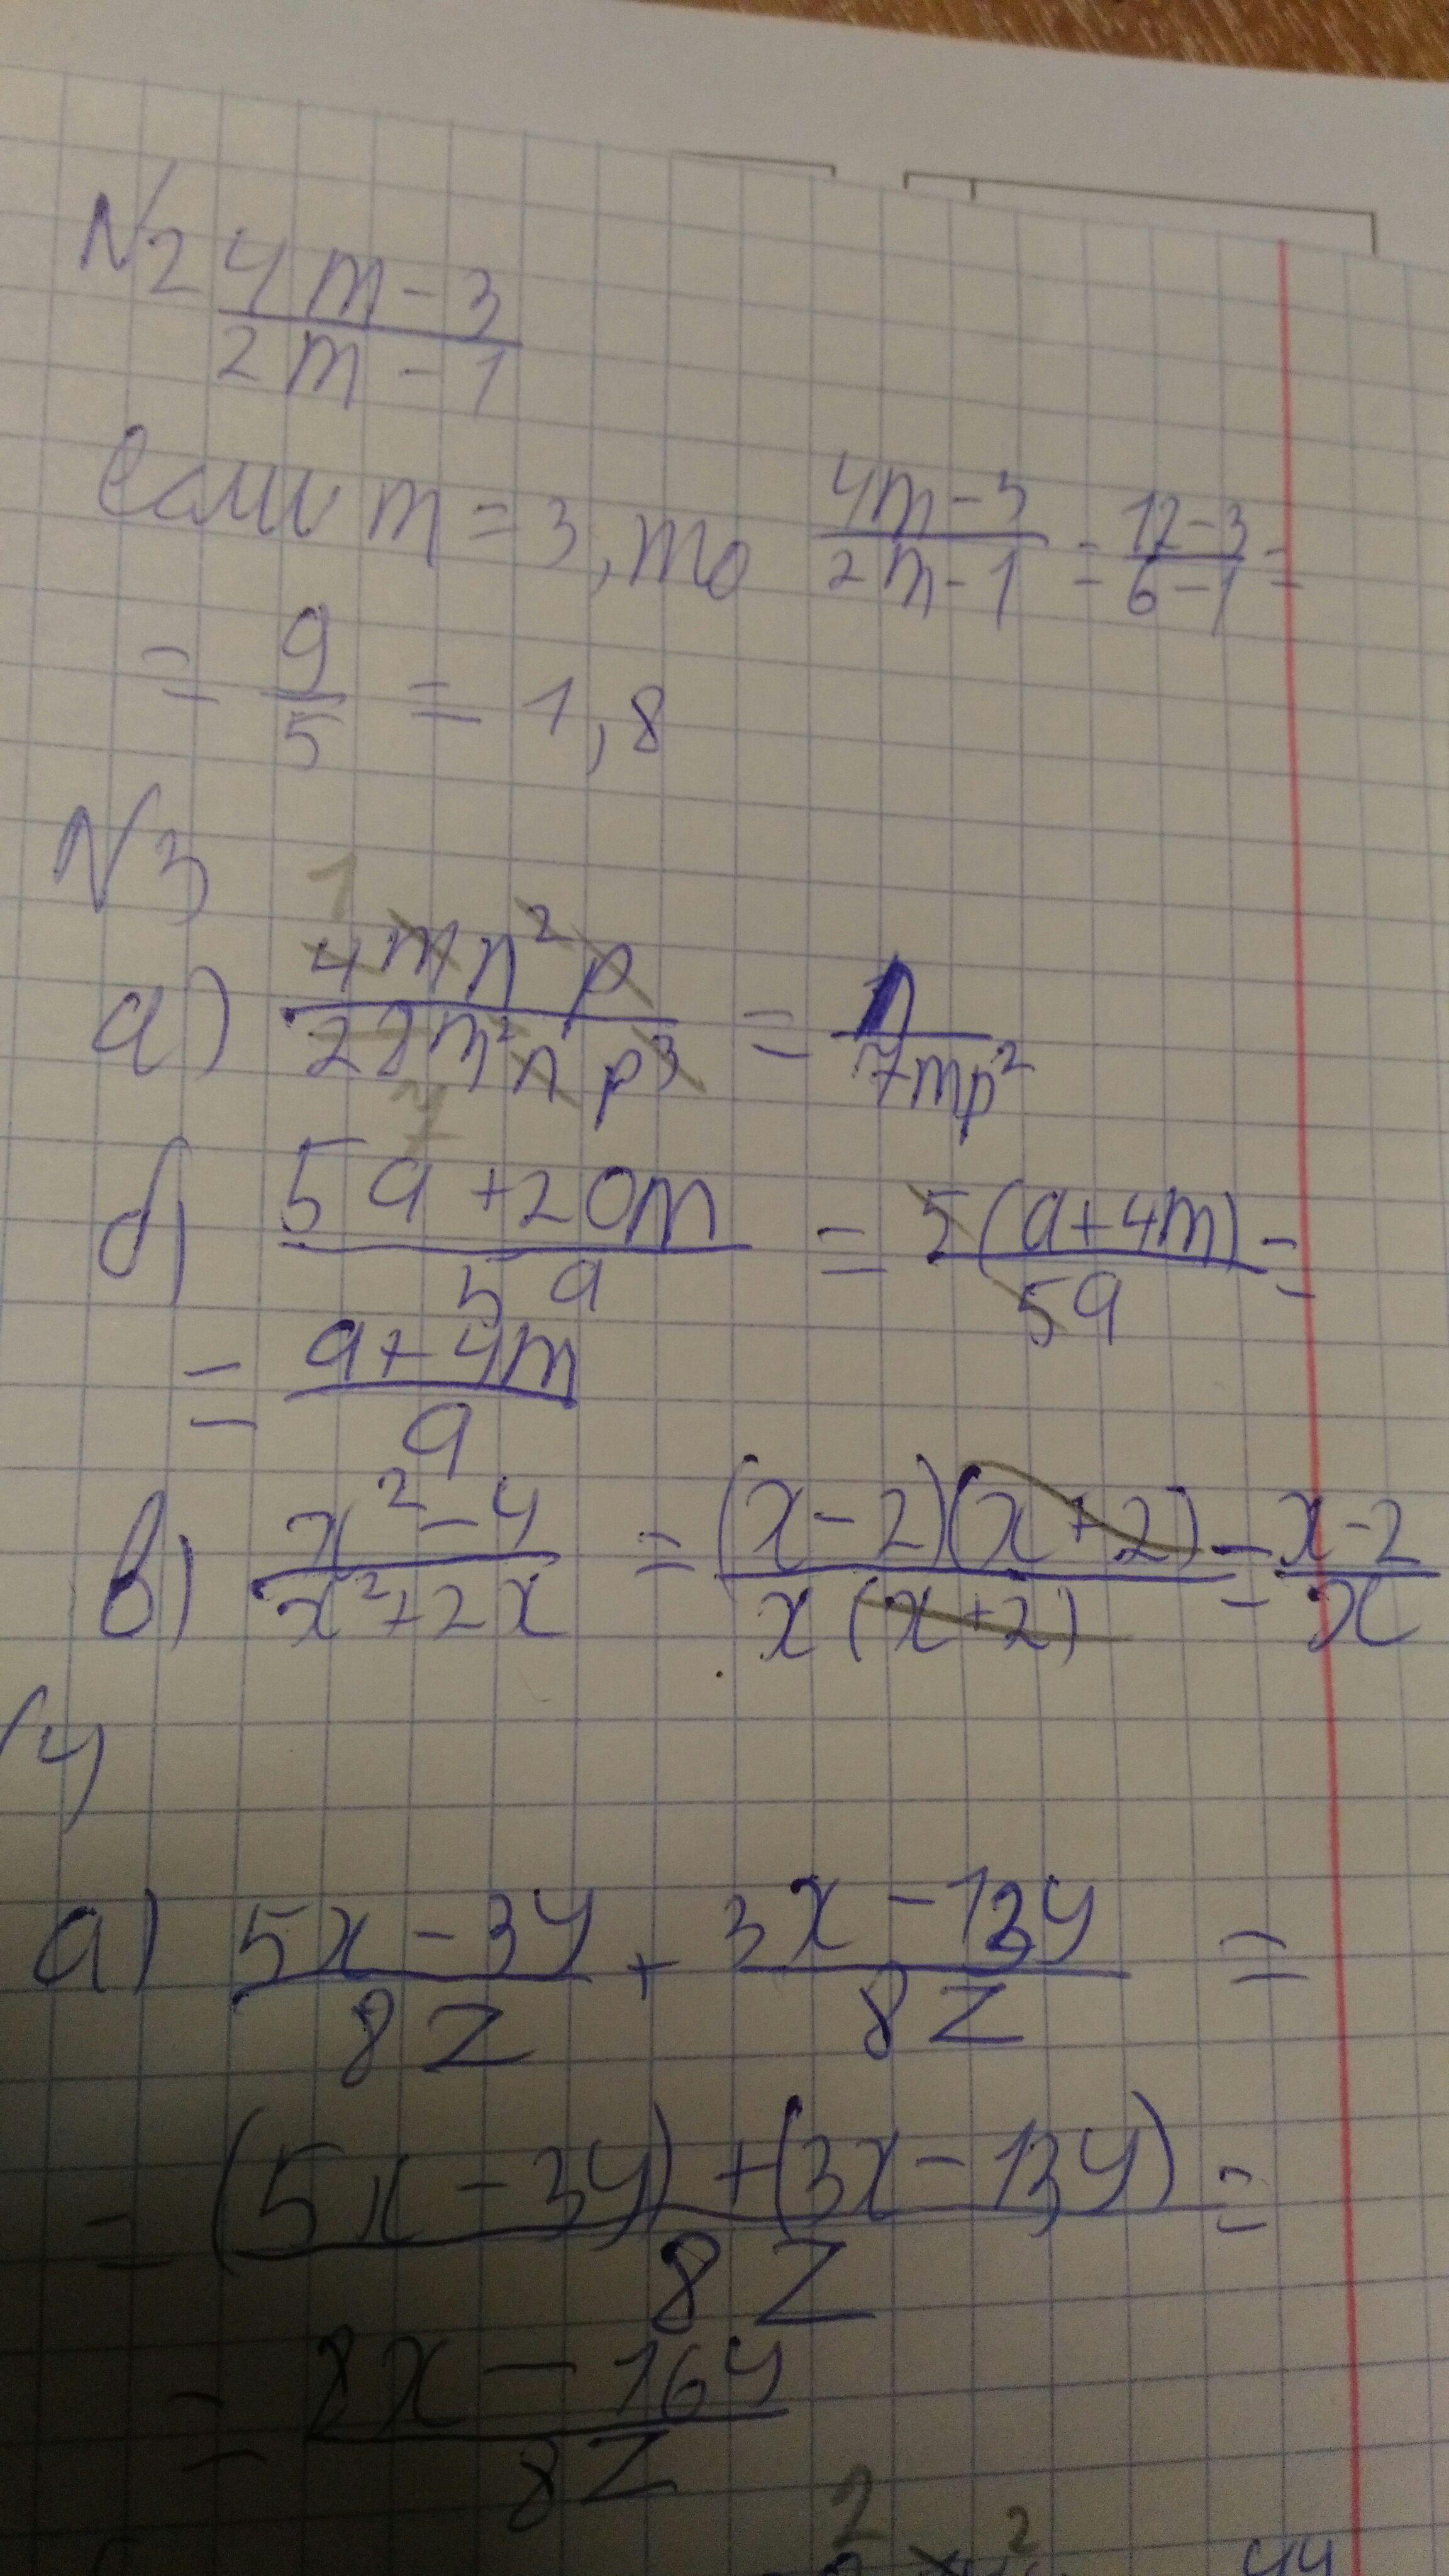 №2 (4m-3)/(2m-1)
если m=3, то (4m-3)/(2m-1) = (12-3)/(6-1) =
= 9/5 = 1,8
№3
а) 4mn²p/28m²np³ = n/7mp²
1
7
б) (5a+20m)/5a = 5(a+4m)/5a =
= (a+4m)/a
в) (x²-4)/(x²+2x) = (x-2)(x+2)/x(x+2) = (x-2)/x
4
а) (5x-3y)/8z + (3x-13y)/8z =
= ((5x-3y)+(3x-13y))/8z =
= (8x-16y)/8z